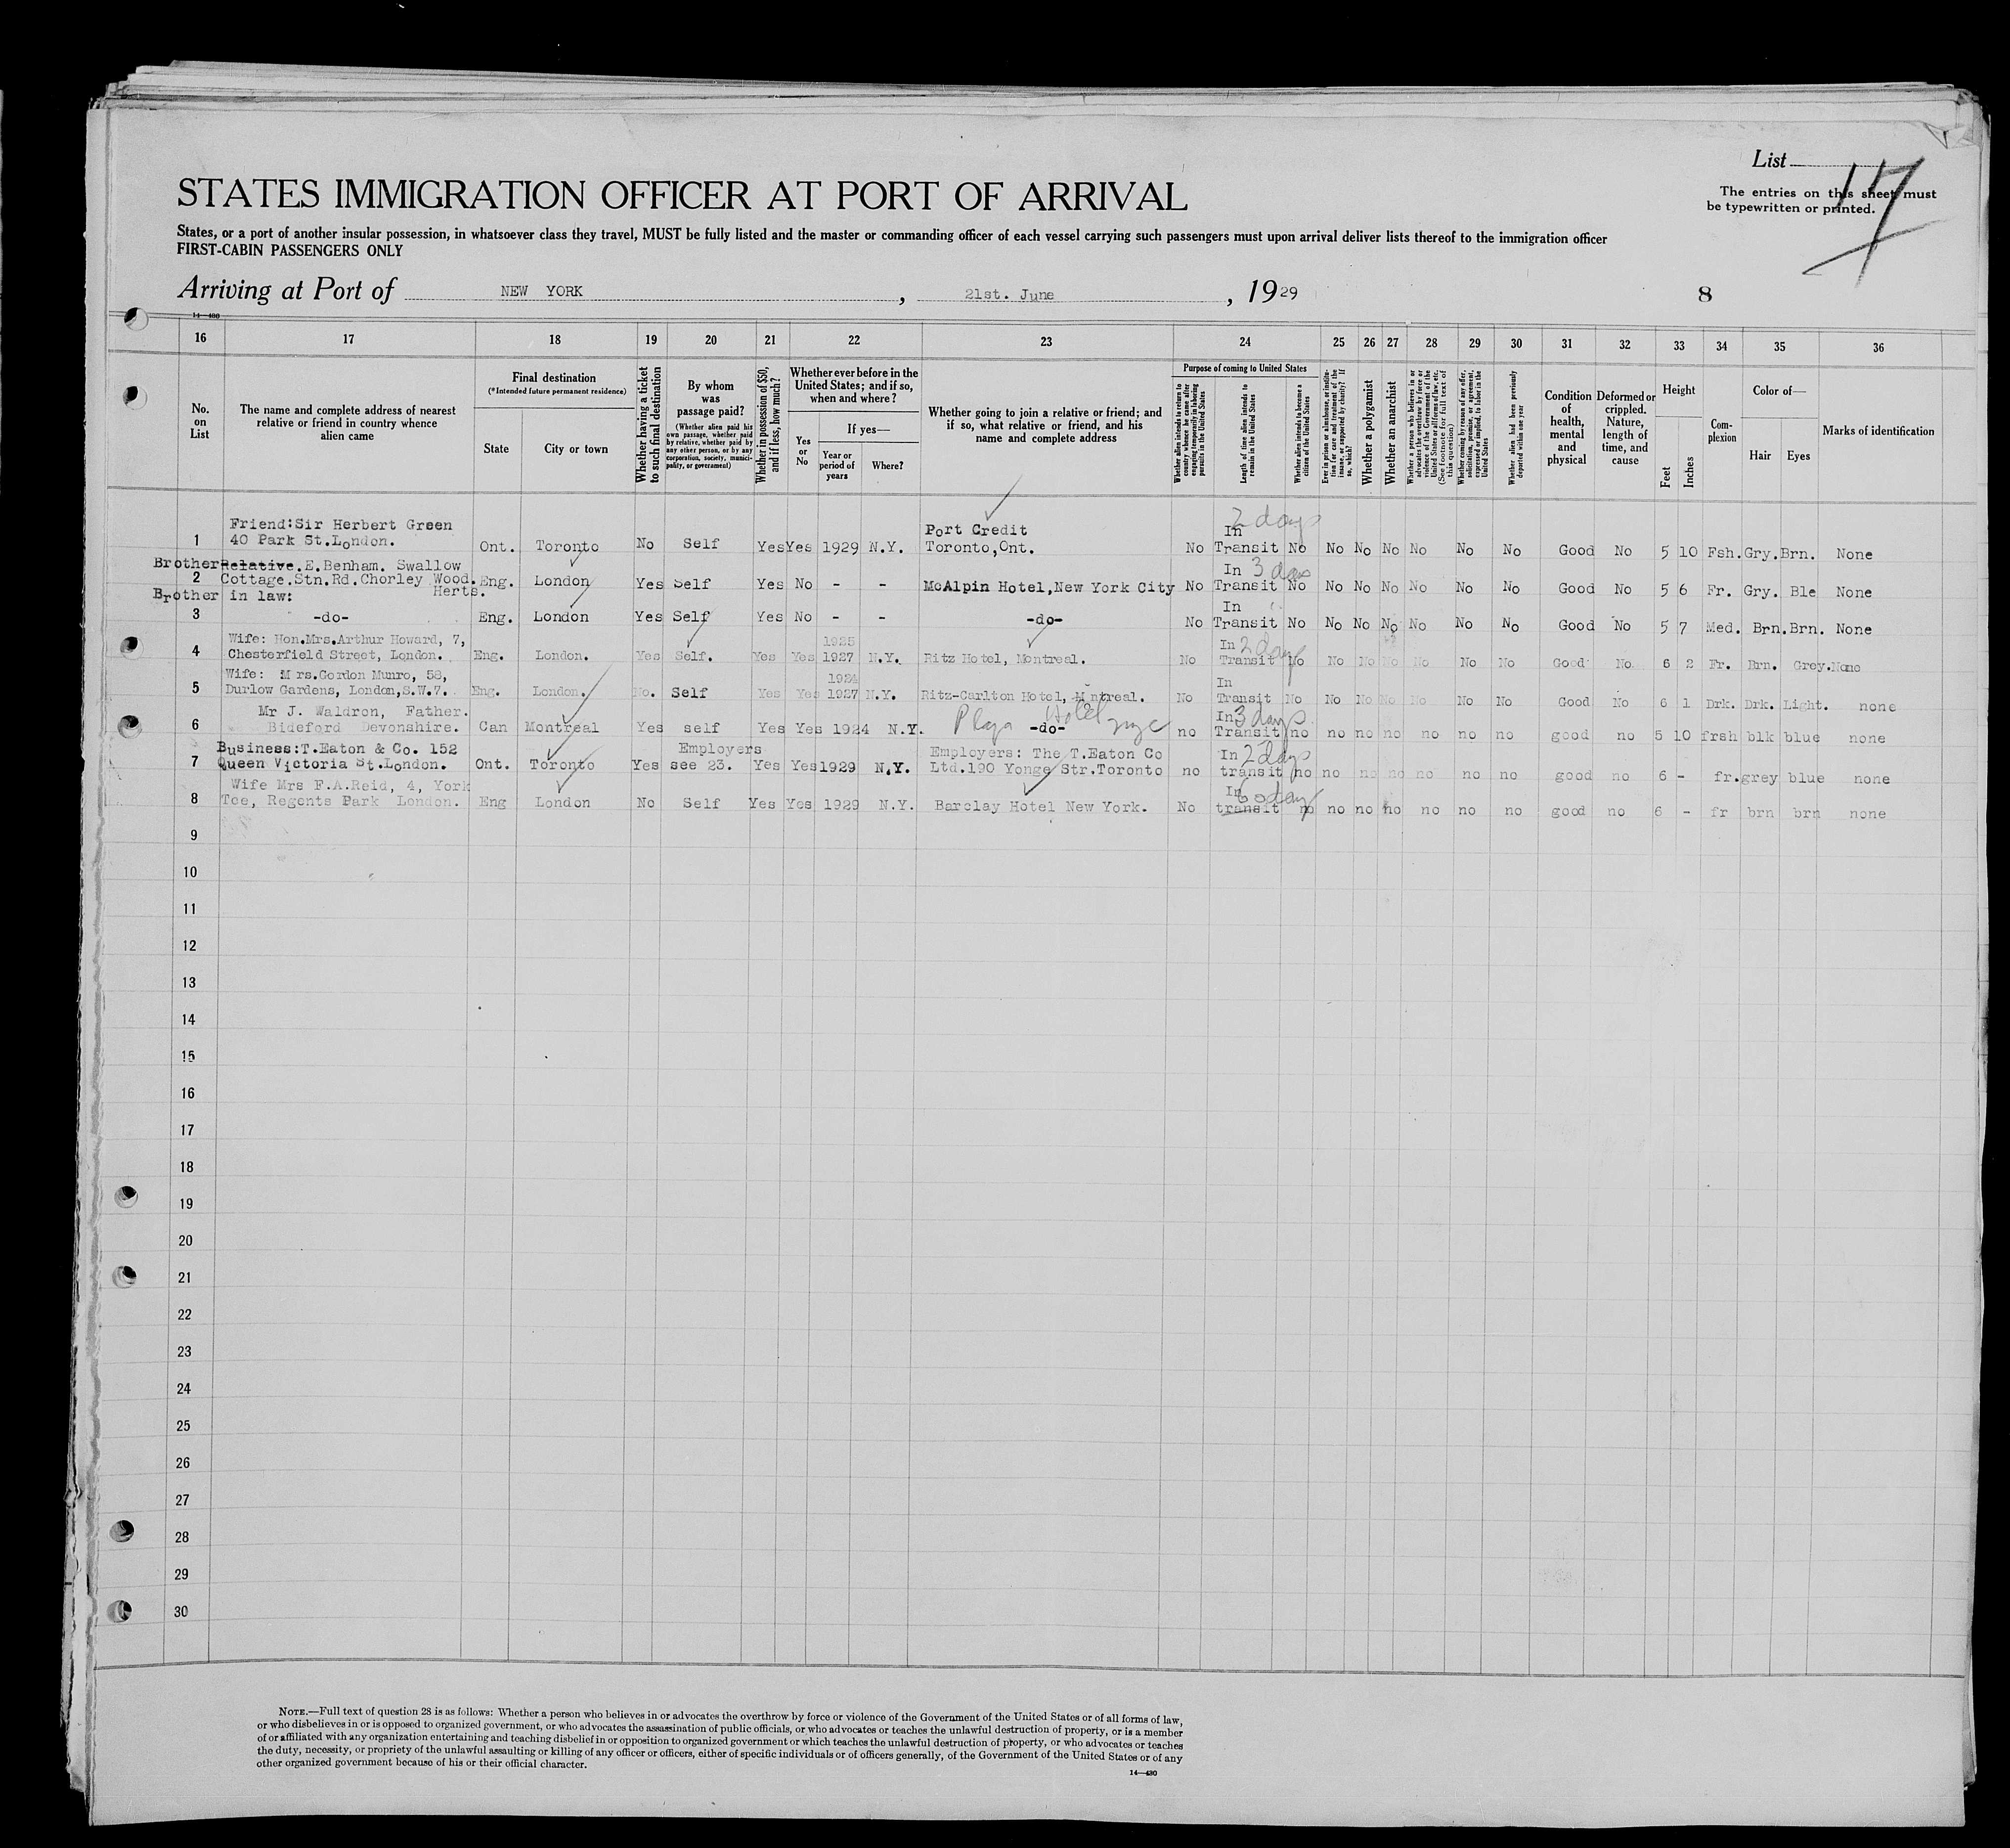 List
17
The entries on this sheet must
be typewritten or printed.
STATES IMMIGRATION OFFICER AT PORT OF ARRIVAL
States, or a port of another insular possession, in whatsoever class they travel, MUST be fully listed and the master or commanding officer of each vessel carrying such passengers must upon arrival deliver lists thereof to the immigration officer
FIRST-CABIN PASSENGERS ONLY
Arriving at Port of NEW YORK, 21st. June, 1929
8
14—480
16 17 18 19 20 21 22 23 24 25 26 27 28 29 30 31 32 33 34 35 36
No. on List
The name and complete address of nearest
relative or friend in country whence
alien came
Final destination
(*Intended future permanent residence)
State
City or town
Whether having a ticket
to such final destination
By whom
was
passage paid?
(Whether alien paid his
own passage, whether paid
by relative, whether paid by
any other person, or by any
corporation, society, munici-
pality, or government)
Whether in possession of $50,
and if less, how much?
Whether ever before in the
United States; and if so,
when and where?
Yes
or
No
If yes—
Year or
period of
years
Where?
Whether going to join a relative or friend; and
if so, what relative or friend, and his
name and complete address
Purpose of coming to United States
Whether alien intends to return to
country whence he came after
engaging temporarily in laboring
pursuits in the United States
Length of time alien intends to
remain in the United States
Whether alien intends to become a
citizen of the United States
Ever in prison or almshouse, or institu-
tion for care and treatment of the
insane, or supported by charity? If
so, which?
Whether a polygamist
Whether an anarchist
Whether a person who believes in or
advocates the overthrow by force or
violence of the Government of the
United States or all forms of law, etc.
(See footnote for full text of
this question)
Whether coming by reason of any offer,
solicitation, promise, or agreement,
expressed or implied, to labor in the
United States
Whether alien had been previously
deported within one year
Condition
of
health,
mental
and
physical
Deformed or
crippled.
Nature,
length of
time, and
cause
Height
Feet
Inches
Com-
plexion
Color of—
Hair
Eyes
Marks of identification
Friend:Sir Herbert Green Port Credit In 2 days
1 40 Park St.London. Ont. Toronto No Self Yes Yes 1929 N.Y. Toronto,Ont. No Transit No No No No No No No Good No 5 10 Fsh. Gry. Brn. None
Brother Relative.E.Benham. Swallow In 3 days
2 Cottage.Stn.Rd.Chorley Wood. Eng. London Yes Self Yes No - - McAlpin Hotel,New York City No Transit No No No No No No No Good No 5 6 Fr. Gry. Ble None
Herts.
Brother in law: In
3 -do- Eng. London Yes Self Yes No - - -do- No Transit No No No No No No No Good No 5 7 Med. Brn. Brn. None
Wife: Hon.Mrs.Arthur Howard, 7, 1925 In 2 days
4 Chesterfield Street, London. Eng. London. Yes Self. Yes Yes 1927 N.Y. Ritz Hotel, Montreal. No Transit No No No No No No No Good No. 6 2 Fr. Brn. Grey. None
Wife: Mrs.Gordon Munro, 58, 1924 In
5 Durlow Gardens, London,S.W.7. Eng. London. No. Self Yes Yes 1927 N.Y. Ritz-Carlton Hotel, Montreal. No Transit No No No No No No No Good No 6 1 Drk. Drk. Light. none
Mr J. Waldron, Father. Plaza Hotel nyc In 3 days
6 Bideford Devonshire. Can Montreal Yes self Yes Yes 1924 N.Y. -do- no Transit no no no no no no no good no 5 10 frsh blk blue none
Business:T.Eaton & Co. 152 Employers Employers: The T.Eaton Co In 2 days
7 Queen Victoria St.London. Ont. Toronto Yes see 23. Yes Yes 1929 N.Y. Ltd.190 Yonge Str.Toronto no transit no no no no no no no good no 6 - fr. grey blue none
Wife Mrs F.A.Reid, 4, York In 6 days
8 Tce, Regents Park London. Eng London No Self Yes Yes 1929 N.Y. Barclay Hotel New York. No transit no no no no no no no good no 6 - fr brn brn none
9
10
11
12
13
14
15
16
17
18
19
20
21
22
23
24
25
26
27
28
29
30
NOTE.—Full text of question 28 is as follows: Whether a person who believes in or advocates the overthrow by force or violence of the Government of the United States or of all forms of law,
or who disbelieves in or is opposed to organized government, or who advocates the assassination of public officials, or who advocates or teaches the unlawful destruction of property, or is a member
of or affiliated with any organization entertaining and teaching disbelief in or opposition to organized government or which teaches the unlawful destruction of property, or who advocates or teaches
the duty, necessity, or propriety of the unlawful assaulting or killing of any officer or officers, either of specific individuals or of officers generally, of the Government of the United States or of any
other organized government because of his or their official character.
14—480